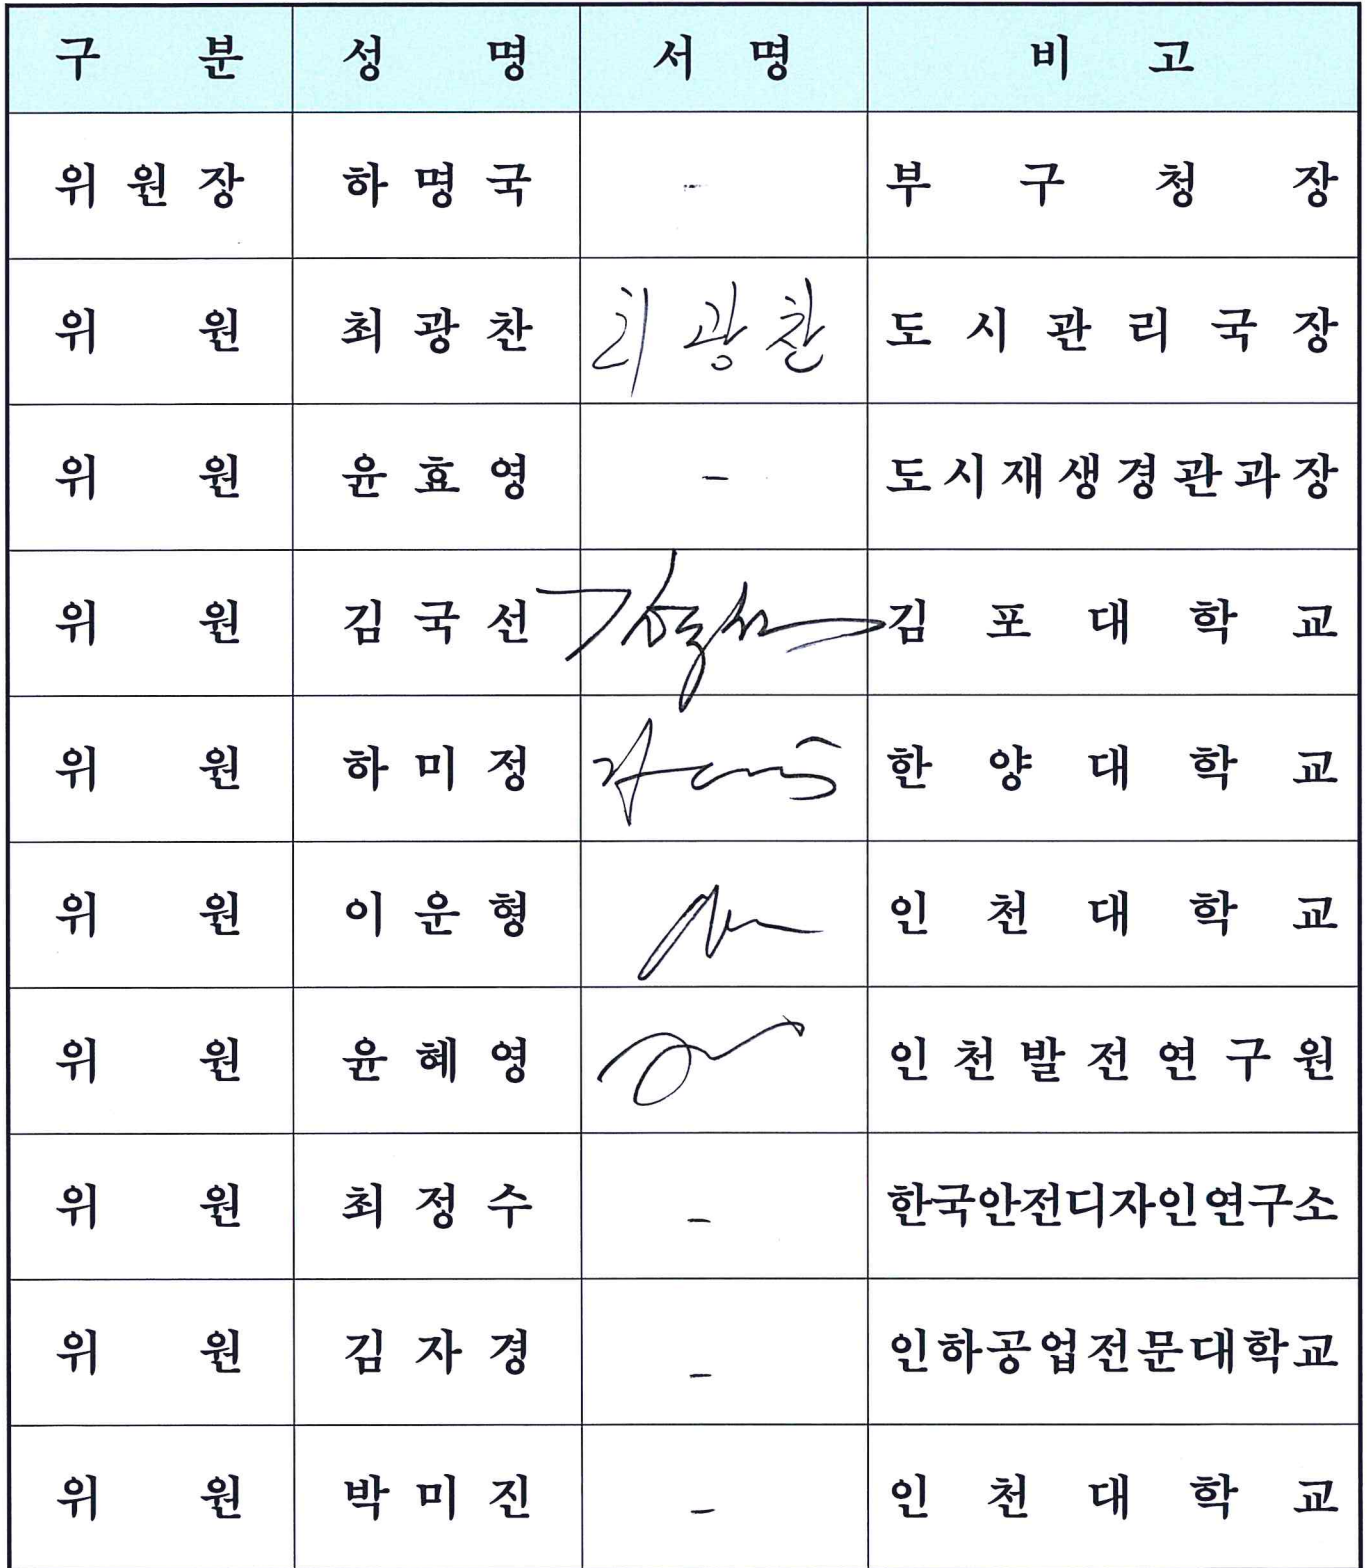 구 분 성 명 서 명 비 고
위 원 장 하 명 국 - 부 구 청 장
위 원 최 광 찬 최 광 찬 도 시 관 리 국 장
위 원 윤 효 영 - 도 시 재 생 경 관 과 장
위 원 김 국 선 김국선 김 포 대 학 교
위 원 하 미 정 한 양 대 학 교
위 원 이 운 형 인 천 대 학 교
위 원 윤 혜 영 인 천 발 전 연 구 원
위 원 최 정 수 - 한국안전디자인연구소
위 원 김 자 경 - 인하공업전문대학교
위 원 박 미 진 - 인 천 대 학 교